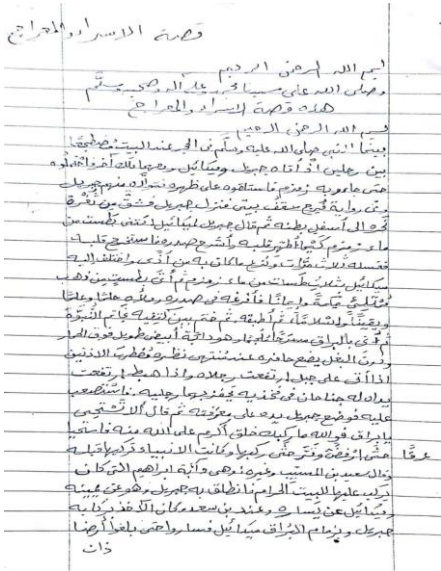 قصة الاسراء والمعراج
بسم الله الرحمن الرحيم
وصلى الله على سيدنا محمد وعلى آله وصحبه وسلم
هذه قصة الإسراء والمعراج
بسم الله الرحمن الرحيم
بينما النبي صلى الله عليه وسلم في الحجر عند البيت مضطجعا
بين رجلين اذ أتاه جبريل وميكائيل ومعهما ملك آخر فاحتملوه
حتى جاءوا به زمزم فاستلقوه على ظهره فتولاه منهم جبريل
وفي رواية فرج سقف بيتي فنزل جبريل فشق من ثغرة
نحره إلى أسفل بطنه ثم قال جبريل لميكائيل ائتني بطست من
ماء زمزم كيما أطهر قلبه وأشرح صدره فاستخرج قلبه
فغسله ثلاث مرات ونزع ما كان به من أذى واختلف إليه
ميكائيل بثلاث طسات من ماء زمزم ثم أتى بطست من ذهب
ممتلئ حكمة وإيمانا فأفرغه في صدره وملأه حلما وعلما
ويقينا وإسلاما ثم أطبقه ثم ختم بين كتفيه بخاتم النبوة
ثم أتى بالبراق مسرجا ملجما وهو دابة أبيض طويل فوق الحمار
ودون البغل يضع حافره عند منتهى نظره مضطرب الاذنين
اذا أتى على جبل ارتفعت رجلاه واذا هبط ارتفعت
يداه له جناحان في فخذيه يحفز بهما رجليه فاستصعب
عليه فوضع جبريل يده على معرفته ثم قال ألا تستحي
يا براق فوالله ما ركبك خلق أكرم على الله منه فاستحيا
حتى ارفض عرقا وقر حتى ركبها وكانت الانبياء تركبها قبله
وقال سعيد بن المسيب وغيره وهي دابة ابراهيم التي كان
يركب عليها للبيت الحرام فانطلق به جبريل وهو عن يمينه
وميكائيل عن يساره وعند بن سعد وكان الآخذ بركابه
جبريل وبزمام البراق ميكائيل فساروا حتى بلغوا أرضا
ذات